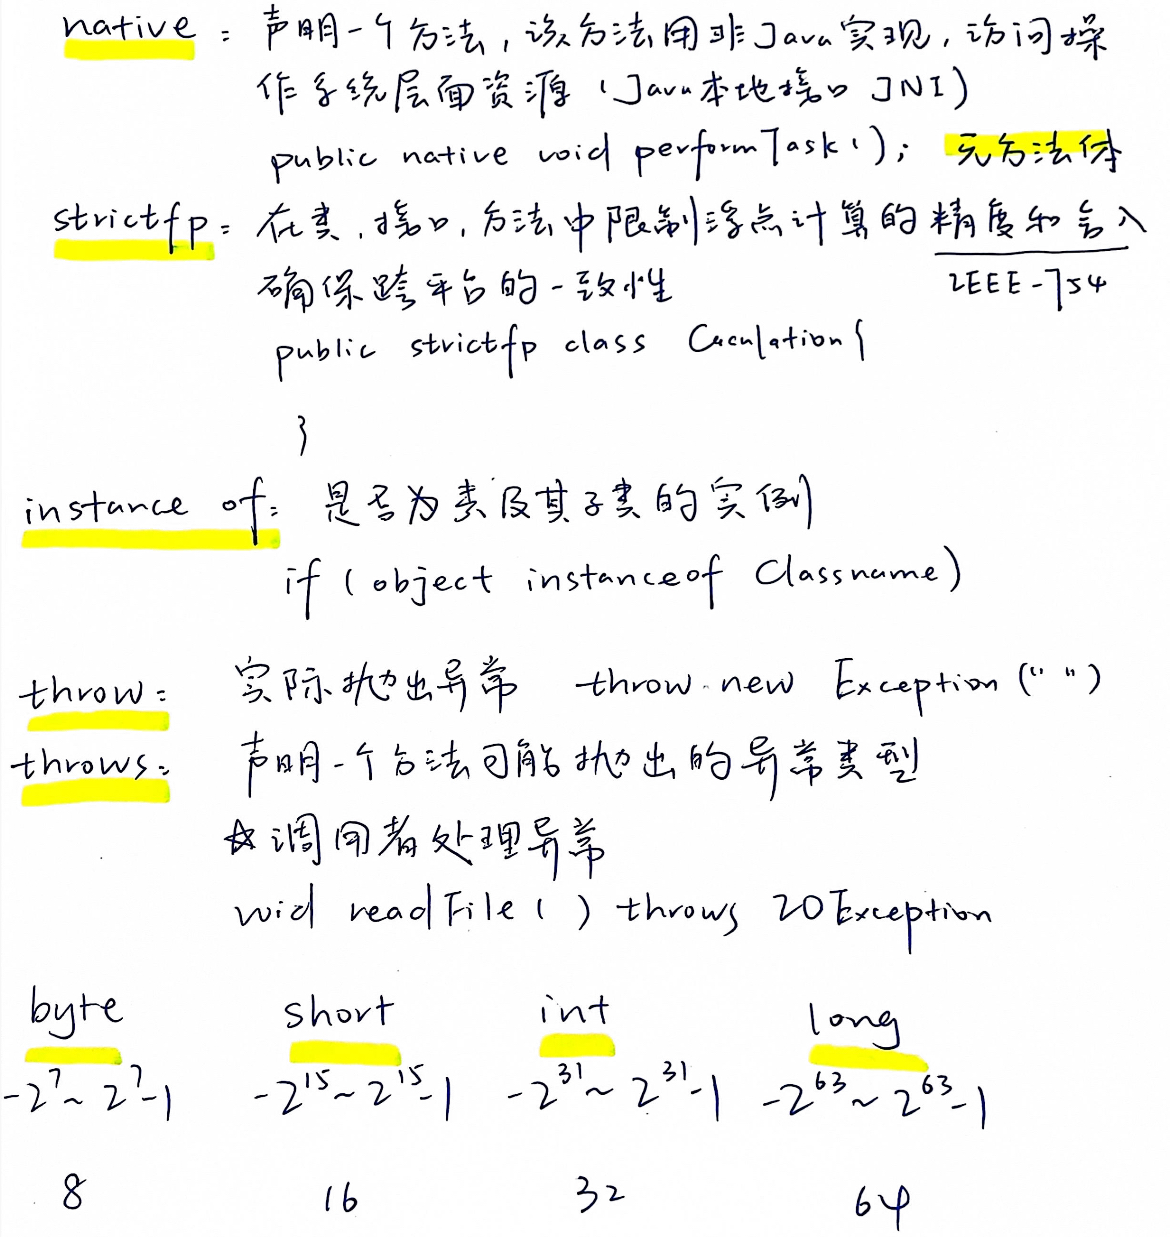 native: 声明一个方法，该方法用非Java实现，访问操
作系统层面资源（Java本地接口 JNI）
public native void performTask(); 无方法体
strictfp: 在类，接口，方法中限制浮点计算的精度和舍入
确保跨平台的一致性 IEEE-754
public strictfp class Caculation{
}
instance of: 是否为类及其子类的实例
if (object instanceof Classname)
throw: 实际抛出异常 throw new Exception("")
throws: 声明一个方法可能抛出的异常类型
☆调用者处理异常
void readFile() throws IOException
byte short int long
-2⁷~2⁷-1 -2¹⁵~2¹⁵-1 -2³¹~2³¹-1 -2⁶³~2⁶³-1
8 16 32 64